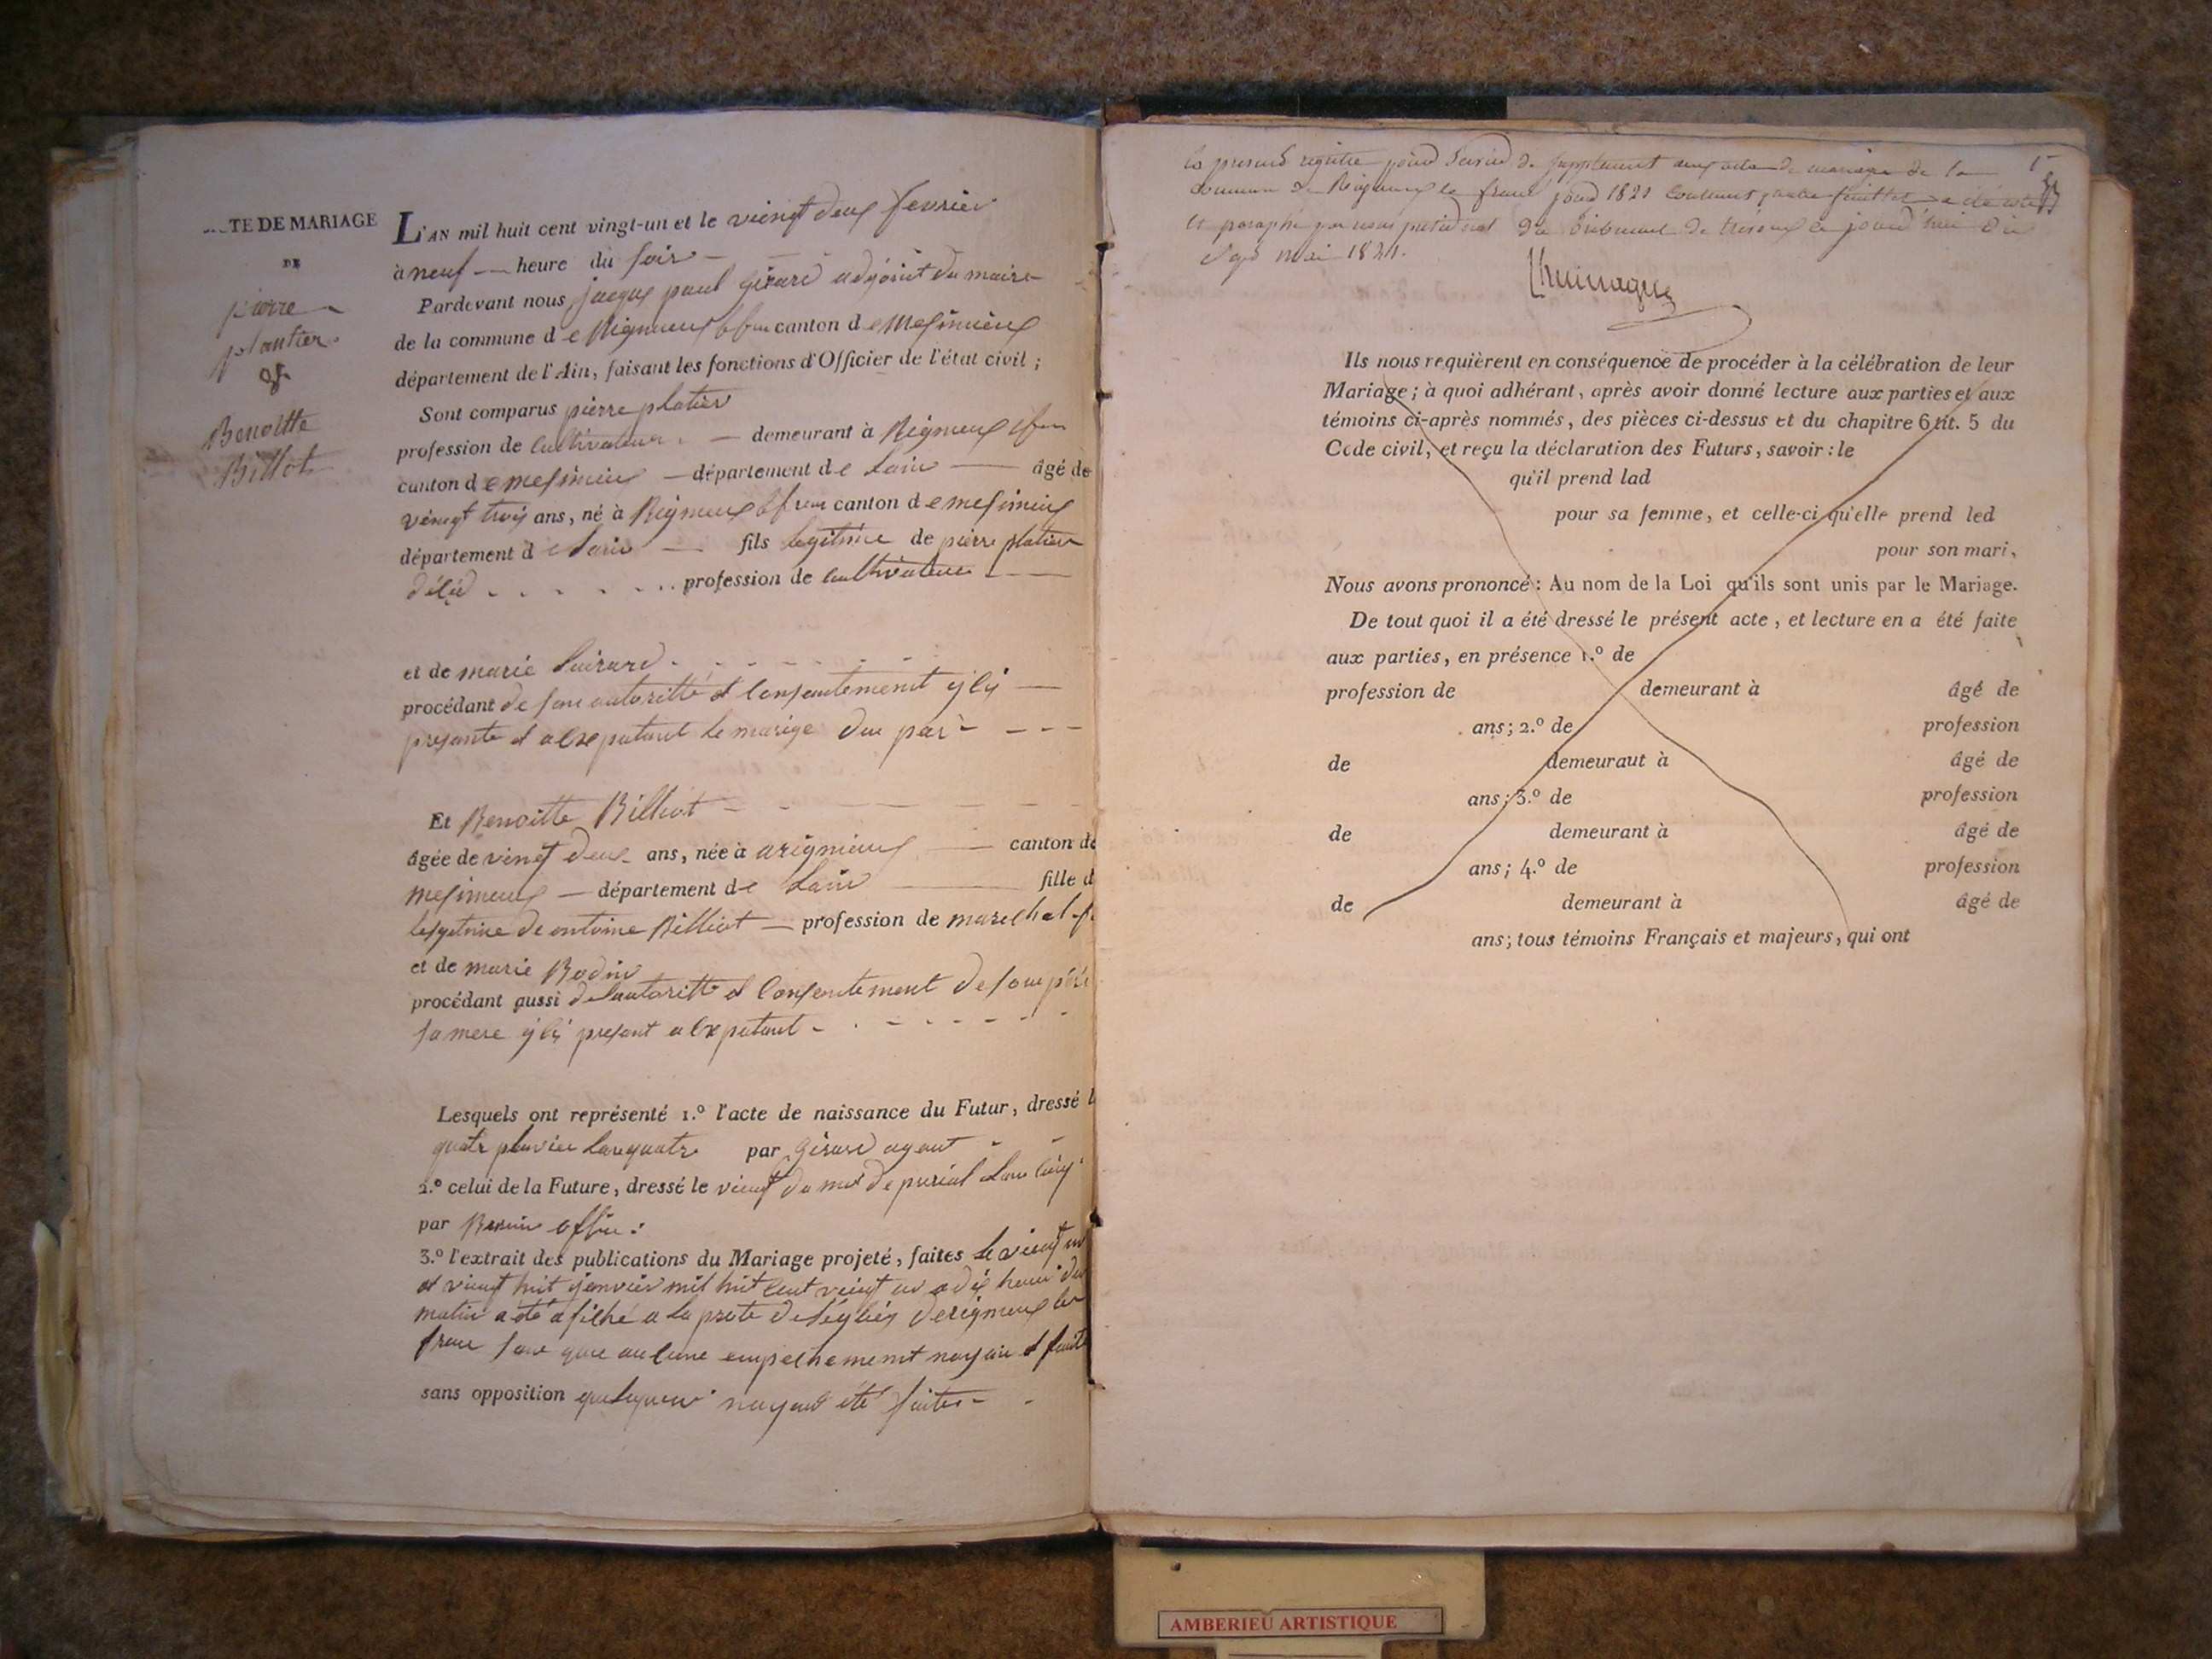 TE DE MARIAGE
DE
pierre
plantier
et
Benoitte
Billot
L'AN mil huit cent vingt-un et le vingt deux fevrier
à neuf heure du soir
Pardevant nous jacque paul girard adjoint du maire
de la commune de Rignieux le franc canton de Mesimieux
département de l'Ain, faisant les fonctions d'Officier de l'état civil ;
Sont comparus pierre platier
profession de cultivateur demeurant à Rignieux
canton de mesimieux département de Lain âgé de
vingt trois ans, né à Rignieux canton de mesimieux
département de Lain fils legitime de pierre platier
profession de cultivateur
et de marie
procédant de son autoritté et consentement
presante et alxeptant le mariage
Et Benoitte Billiot
âgée de vingt deux ans, née à arignieux canton de
mesimieux département de Lain fille d
legitime de antoine Billiot profession de marechal
et de marie Bodin
procédant aussi de autoritté et consentement de son pere
sa mere presant alxeptant
Lesquels ont représenté 1.º l'acte de naissance du Futur, dressé l
quatre par girard agent
2.º celui de la Future, dressé le vingt du mois de
par
3.º l'extrait des publications du Mariage projeté, faites le vingt un
et vingt huit janvier mil huit cent vingt un a dix heure du
matin a été afiché a la porte de de rignieux le
franc sans que aucune empechement
sans opposition quelqueu nayant été faite
Le present registre pour servir de supplement aux actes de mariage de la
commune de Rignieux le franc pour 1821 contenant feuillet a été coté
et paraphé par nous president du tribunal de trévoux ce jourd'hui
mai 1821.
Ils nous requièrent en conséquence de procéder à la célébration de leur
Mariage ; à quoi adhérant, après avoir donné lecture aux parties et aux
témoins ci-après nommés, des pièces ci-dessus et du chapitre 6 tit. 5 du
Code civil, et reçu la déclaration des Futurs, savoir : le
qu'il prend lad
pour sa femme, et celle-ci qu'elle prend led
pour son mari,
Nous avons prononcé : Au nom de la Loi qu'ils sont unis par le Mariage.
De tout quoi il a été dressé le présent acte, et lecture en a été faite
aux parties, en présence 1.º de
profession de demeurant à âgé de
ans ; 2.º de profession
de demeuraut à âgé de
ans ; 3.º de profession
de demeurant à âgé de
ans ; 4.º de profession
de demeurant à âgé de
ans ; tous témoins Français et majeurs, qui ont
AMBERIEU ARTISTIQUE